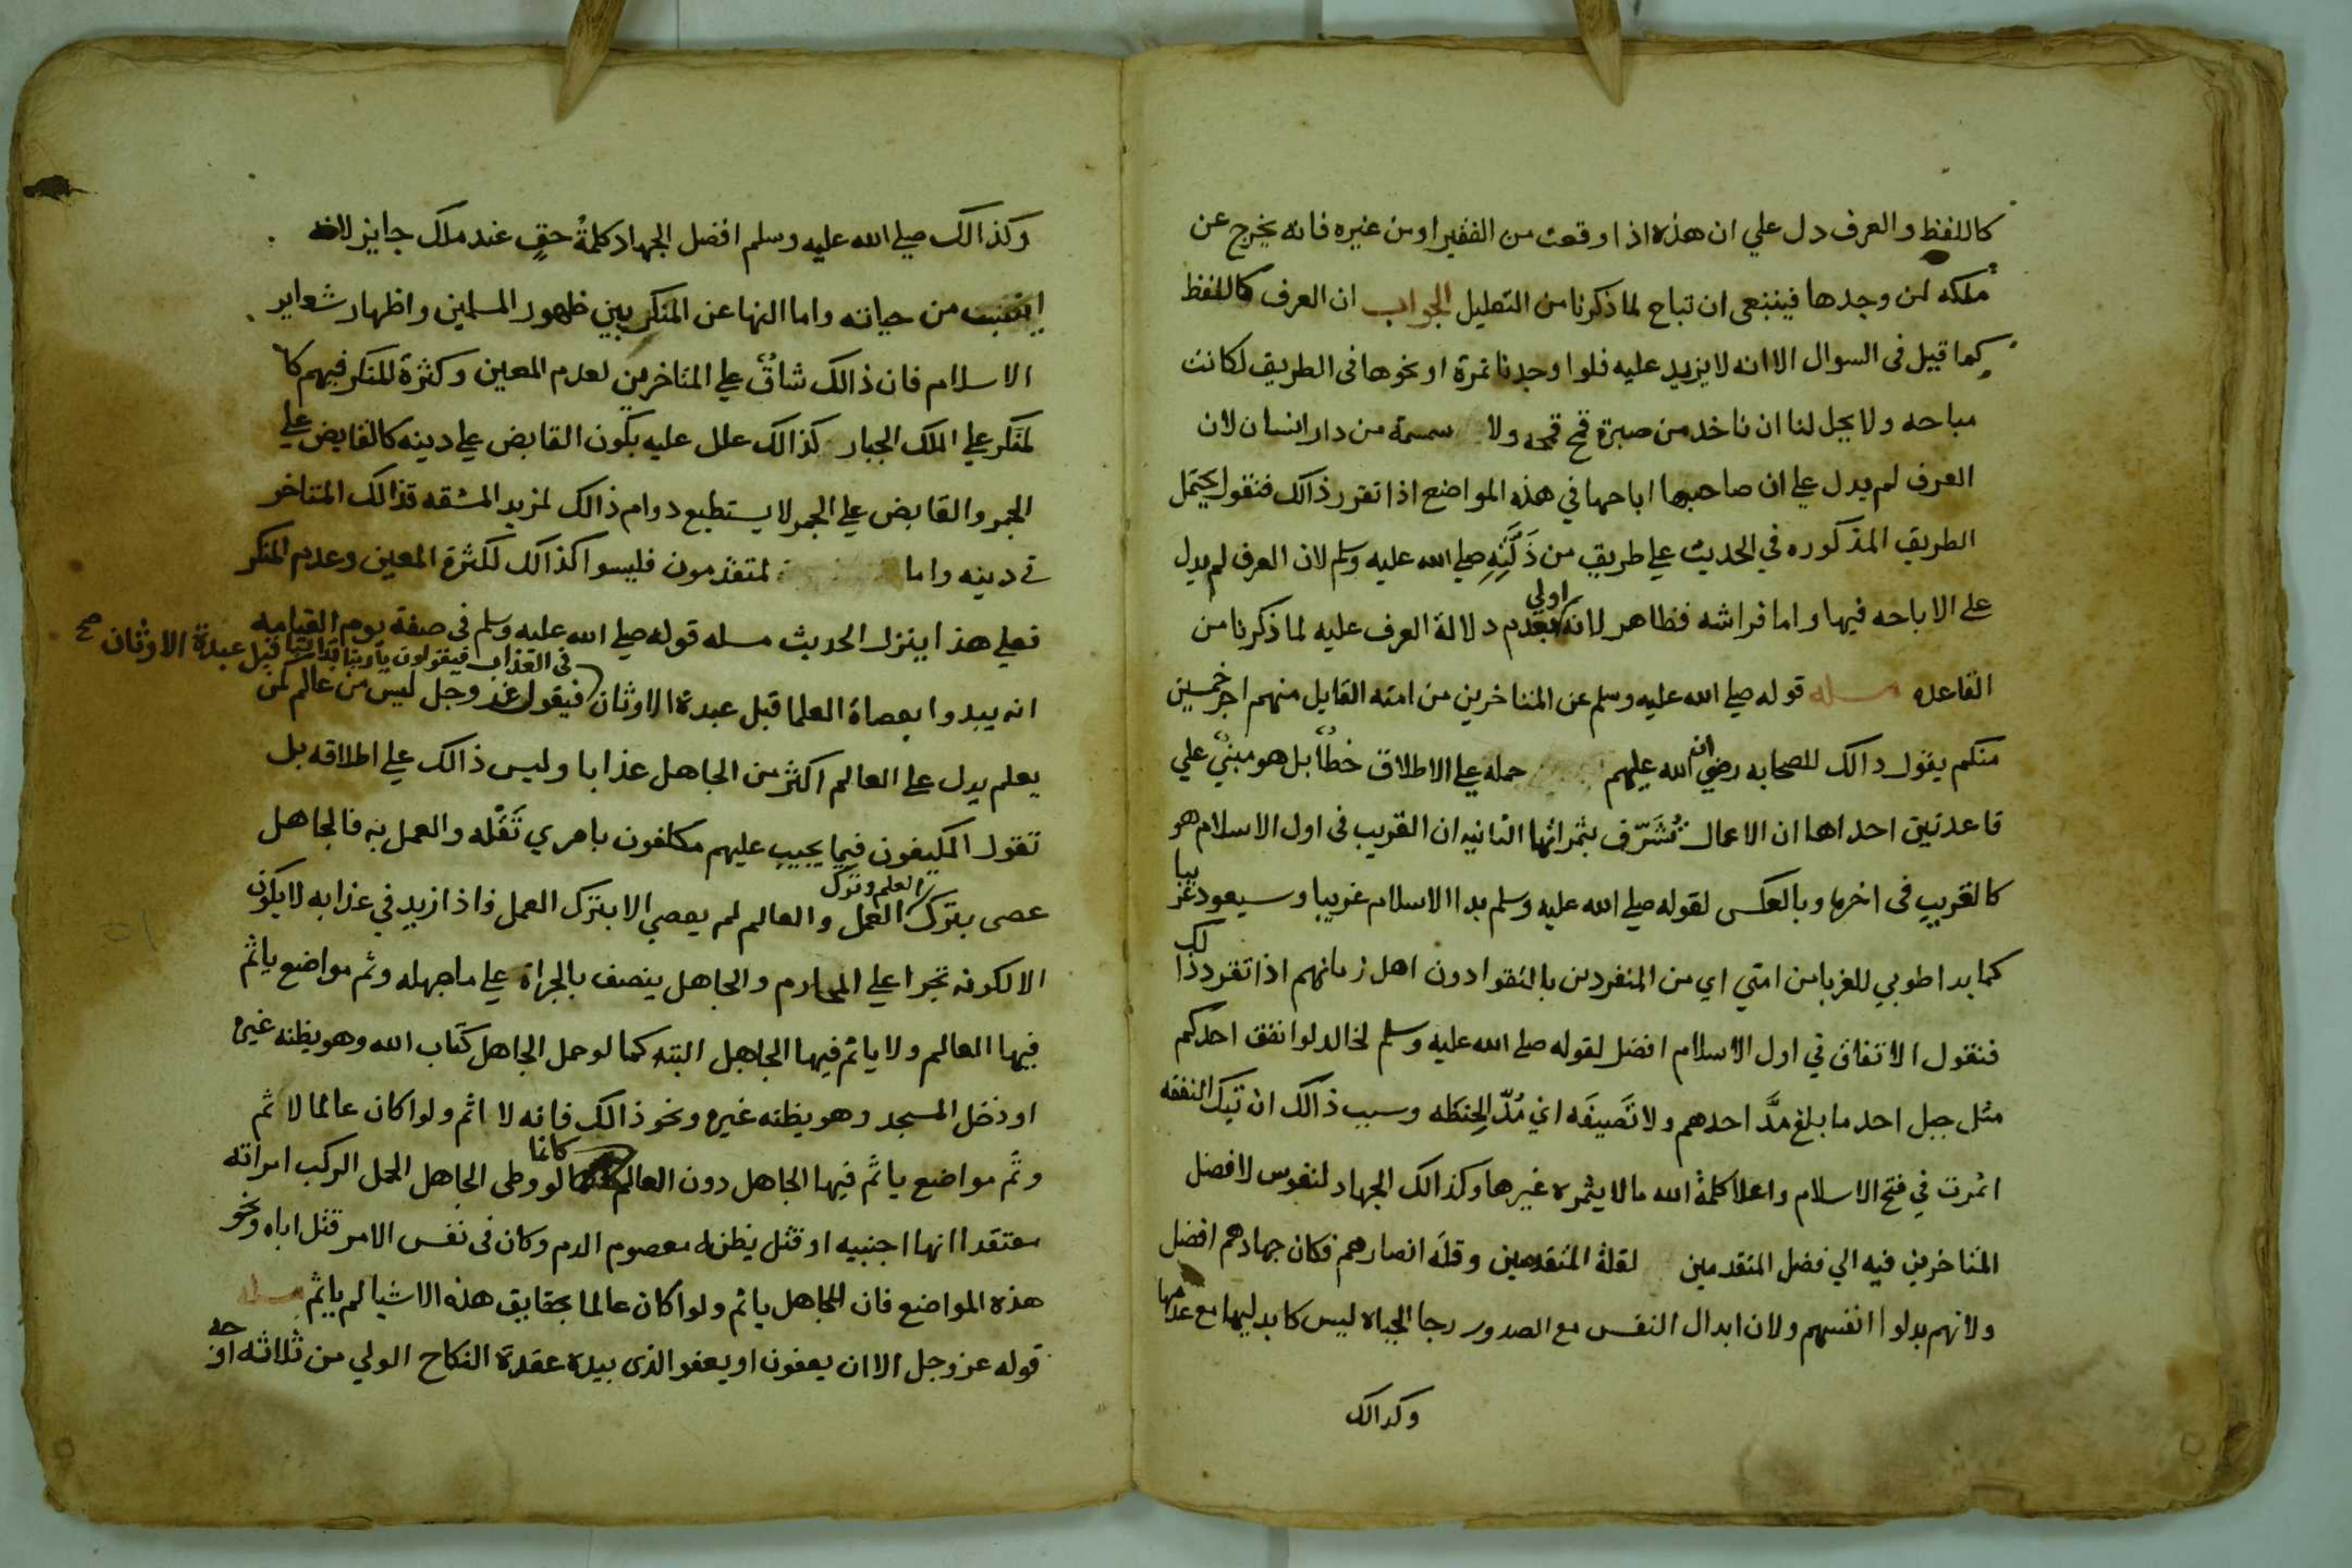 كاللفظ والعرف دل علي ان هذه اذا وقعت من الفقير اومن غيره فانه يخرج عن
ملكه لمن وجدها فينبغى ان تباح لما ذكرنا من التعليل الجواب ان العرف كاللفظ
كما قيل فى السوال الا انه لا يزيد عليه فلوا وجدنا تمرة او نحوها فى الطريق لكانت
مباحه ولا يحل لنا ان ناخد من صبرة قمح قمحه ولا سمسمة من دار انسان لان
العرف لم يدل علي ان صاحبها اباحها في هذه المواضع اذا تقرر ذالك فنقول يحتمل
الطريق المذكوره في الحديث علي طريق من صلي الله عليه وسلم لان العرف لم يدل
علي الاباحه فيها واما فراشه فظاهر لانه اولي بعدم دلالة العرف عليه لما ذكرنا من
القاعده مسله قوله صلي الله عليه وسلم عن المتاخرين من امته القايل منهم اجر خمسين
منكم يقول دالك للصحابه رضوان الله عليهم حمله علي الاطلاق خطأ بل هو مبنيٌ علي
قاعدتين احداها ان الاعمال تُشَرّف بثمراتها الثانيه ان القريب فى اول الاسلام هو
كالقريب فى اخرها وبالعكس لقوله صلي الله عليه وسلم بدا الاسلام غريبا وسيعود غريبا
كما بدا طوبي للغربا من امتي اي من المنفردين بالتقوا دون اهل زمانهم اذا تقرر ذالك
فنقول الاتفاق في اول الاسلام افضل لقوله صلي الله عليه وسلم لخالد لوا نفق احدكم
مثل جبل احد ما بلغ مُدَّ احدهم ولا نَصيفَه اي مُدّ الحِنطه وسبب ذالك ان تيك النفقه
اثمرت في فتح الاسلام واعلا كلمة الله مالا يثمره غيرها وكذالك الجهاد لنفوس لا فضل
المتاخرين فيه الي فضل المتقدمين لقلة المتقدمين وقلة انصارهم فكان جهادهم افضل
ولانهم بدلوا انفسهم ولان ابدال النفس مع الصدور رجا الحياه ليس كابدليها مع عدمها
وكدالك
وكذالك صلي الله عليه وسلم افضل الجهاد كلمةُ حقٍ عند ملك جايز لانه
من حياته واما النها عن المنكر بين ظهور المسلمين واظهار شعاير
الاسلام فان ذالك شاقٌ علي المتاخرين لعدم المعين وكثرة المنكر فيهم كا
لمنكر علي الملك الجبار كذالك علل عليه بكون القابض علي دينه كالقابض علي
الجمر والقابض علي الجمر لا يستطيع دوام ذالك لمزيد المشقه فذالك المتاخر
في دينه واما لمتقدمون فليسوا كذالك لكثرة المعين وعدم المنكر
فعلي هذا ينزل الحديث مسله قوله صلي الله عليه وسلم فى صفة يوم القيامه
انه يبدوا بعصاة العلما قبل عبدة الاوثان فيقول عز وجل ليس من عالم كمن
فى العذاب فيقولون ياربنا قبل عبدة الاوثان صح
يعلم يدل علي العالم اكثر من الجاهل عذابا وليس ذالك علي اطلاقه بل
تقول المكيفون فيما يجيب عليهم مكلفون بامرين والعمل به فالجاهل
عصى بترك العلم وترك العمل والعالم لم يعصي الا بترك العمل فاذا زيد في عذابه لا يكون
الا لكونه تجرا علي المحارم والجاهل ينصف بالجراة علي ما جهله وثم مواضع ياثم
فيها العالم ولا ياثم فيها الجاهل البته كما لو حمل الجاهل كتاب الله وهو يظنه غيره
او دخل المسجد وهو يظنه غيره ونحو ذالك فانه لا اثم ولوا كان عالما لا ثم
وثَّم مواضع ياثَّم فيها الجاهل دون العالم كانما لو وطى الجاهل المحل الركب امراته
معتقدا انها اجنبيه او قتل يظن له معصوم الدم وكان فى نفس الامر قتل اباه ونحو
هذه المواضع فان الجاهل ياثم ولوا كان عالما بحقايق هذه الاشيا لم ياثم مسله
قوله عز وجل الا ان يعفون او يعفو الذى بيده عقدة النكاح الولي من ثلاثه اوحه